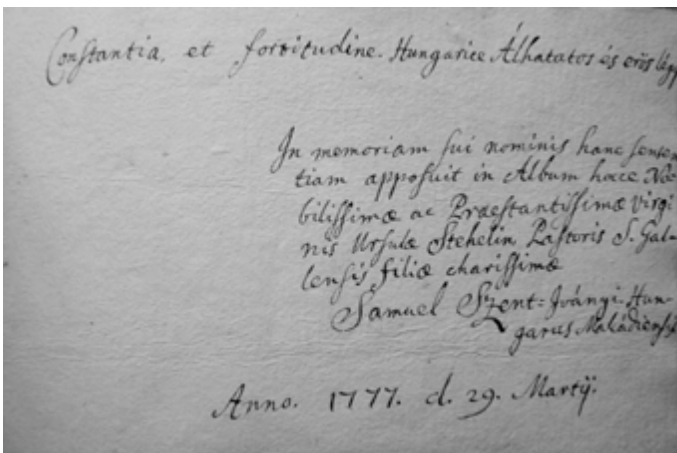 Constantia, et fortitudine. Hungarice Álhatatos és erös légy
In memoriam sui nominis hanc senten
tiam apposuit in Album hocce No-
bilissimæ ac Præstantissimæ Virgi
nis Ursulæ Stehelin, Pastoris S. Gal-
lensis filiæ charissimæ
Samuel Szent=Jványi Hun-
garus Maládiensis
Anno. 1777. d. 29. Martÿ.